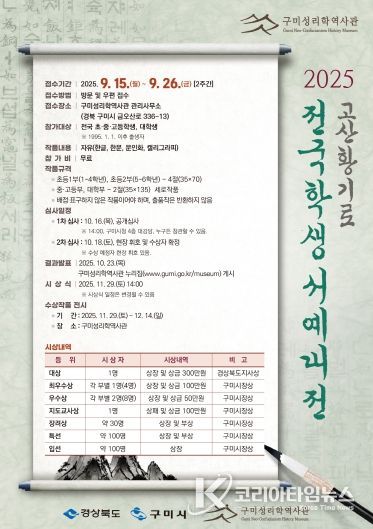 구미성리학역사관
Gumi Neo-Confucianism History Museum
2025
고산황기로
전국학생서예대전
접수기간 | 2025. 9. 15.(월) ~ 9. 26.(금) [2주간]
접수방법 | 방문 및 우편 접수
접수장소 | 구미성리학역사관 관리사무소
(경북 구미시 금오산로 336-13)
참가대상 | 전국 초·중·고등학생, 대학생
※ 1995. 1. 1. 이후 출생자
작품내용 | 자유(한글, 한문, 문인화, 캘리그라피)
참 가 비 | 무료
작품규격
◦ 초등1부(1~4학년), 초등2부(5~6학년) - 4절(35×70)
◦ 중·고등부, 대학부 - 2절(35×135) 세로작품
◦ 배접·표구하지 않은 작품이어야 하며, 출품작은 반환하지 않음
심사일정
◦ 1차 심사 : 10. 16.(목), 공개심사
※ 14:00, 구미시청 4층 대강당, 누구든 참관할 수 있음.
◦ 2차 심사 : 10. 18.(토), 현장 휘호 및 수상자 확정
※ 수상 예정자 현장 휘호 있음.
결과발표 | 2025. 10. 23.(목)
구미성리학역사관 누리집(www.gumi.go.kr/museum) 게시
시 상 식 | 2025. 11. 29.(토) 14:00
※ 시상식 일정은 변경될 수 있음
수상작품 전시
◦ 기 간 : 2025. 11. 29.(토) ~ 12. 14.(일)
◦ 장 소 : 구미성리학역사관
시상내역
등 위 시 상 자 시상내역 비 고
대상 1명 상장 및 상금 300만원 경상북도지사상
최우수상 각 부별 1명(4명) 상장 및 상금 100만원 구미시장상
우수상 각 부별 2명(8명) 상장 및 상금 50만원 구미시장상
지도교사상 1명 상패 및 상금 100만원 구미시장상
장려상 약 30명 상장 및 부상 구미시장상
특선 약 100명 상장 및 부상 구미시장상
입선 약 100명 상장 구미시장상
경상북도 구미시 구미성리학역사관
Gumi Neo-Confucianism History Museum
코리아타임뉴스